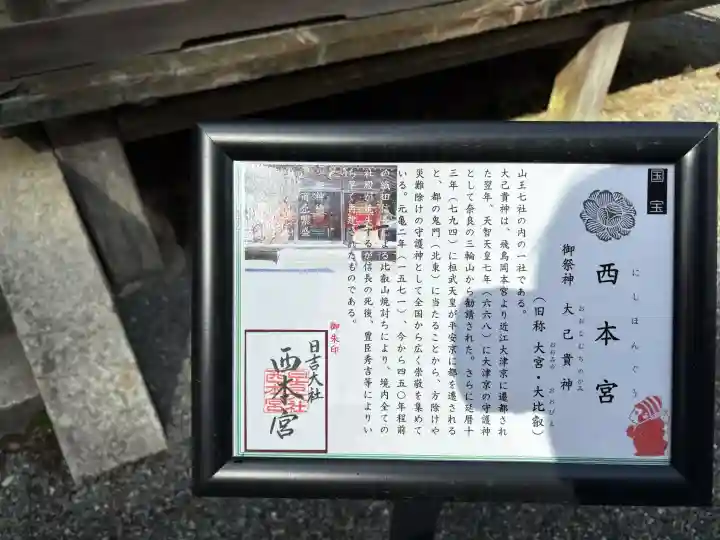 国宝
にしほんぐう
西本宮
御祭神 大己貴神
おおなむちのかみ
(旧称 大宮・大比叡)
おおみや おおびえ
山王七社の内の一社である。
大己貴神は、飛鳥岡本宮より近江大津京に遷都され
た翌年、天智天皇七年(六六八)に大津京の守護神
として奈良の三輪山から勧請された。さらに延暦十
三年(七九四)に桓武天皇が平安京に都を遷される
と、都の鬼門(北東)に当たることから、方除けや
災難除けの守護神として全国から広く崇敬を集めて
いる。元亀二年(一五七一)、今から四五〇年程前
の織田信長による比叡山焼討ちにより、境内全ての
社殿が焼失するが信長の死後、豊臣秀吉等によりい
ち早く再建されたものである。
御朱印
日吉大社
西本宮